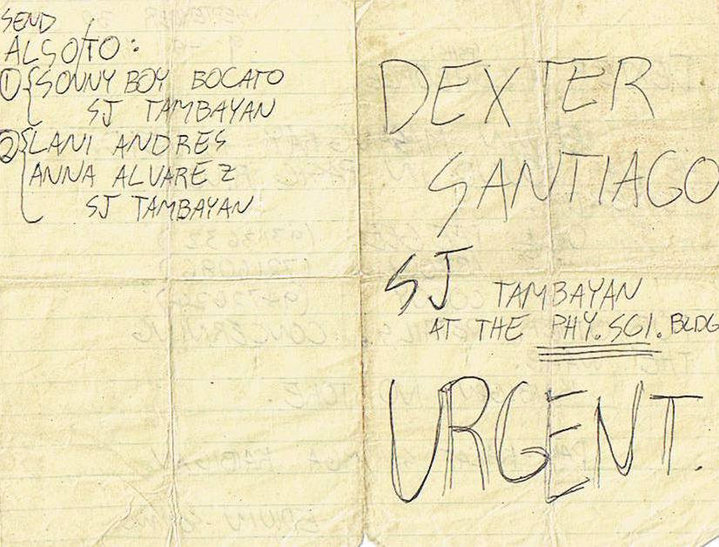 SEND
ALSO TO:
① SONNY BOY BOCATO
SJ TAMBAYAN
② LANI ANDRES
ANNA ALVAREZ
SJ TAMBAYAN
DEXTER
SANTIAGO
SJ TAMBAYAN
AT THE PHY. SCI. BLDG
URGENT.